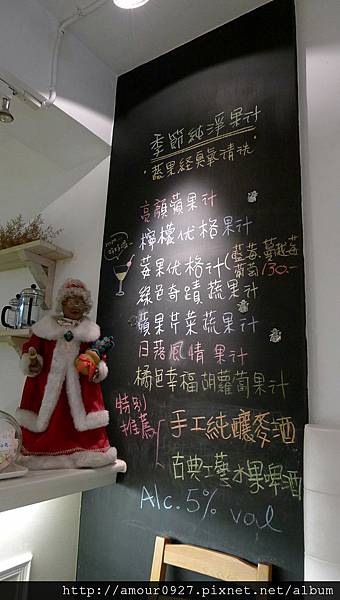 季節純淨果汁
蔬果経臭氧清洗
亮顏蘋果汁
檸檬优格果汁
莓果优格汁(藍莓.蔓越莓
130.-
綠色奇蹟蔬果汁
蘋果芹菜蔬果汁
日落風情果汁
橘色幸福胡蘿蔔果汁
特別
推薦
手工純釀麥酒
古典工藝水果啤酒
Alc.5% vol
http://amour0927.pixnet.net/album